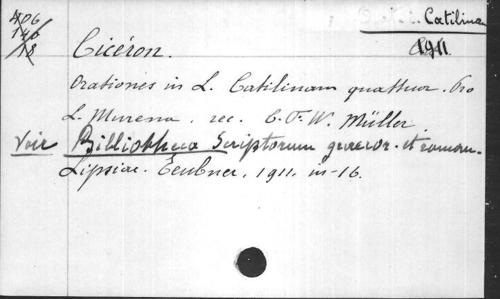 406
146
18
Catilinam
1911
Cicéron.
Orationes in L. Catilinam quattuor. Pro
L. Murena. rec. C. F. W. Müller
Voir Bibliotheca Scriptorum graecor. et roman.
Lipsiae. Teubner, 1911. in-16.